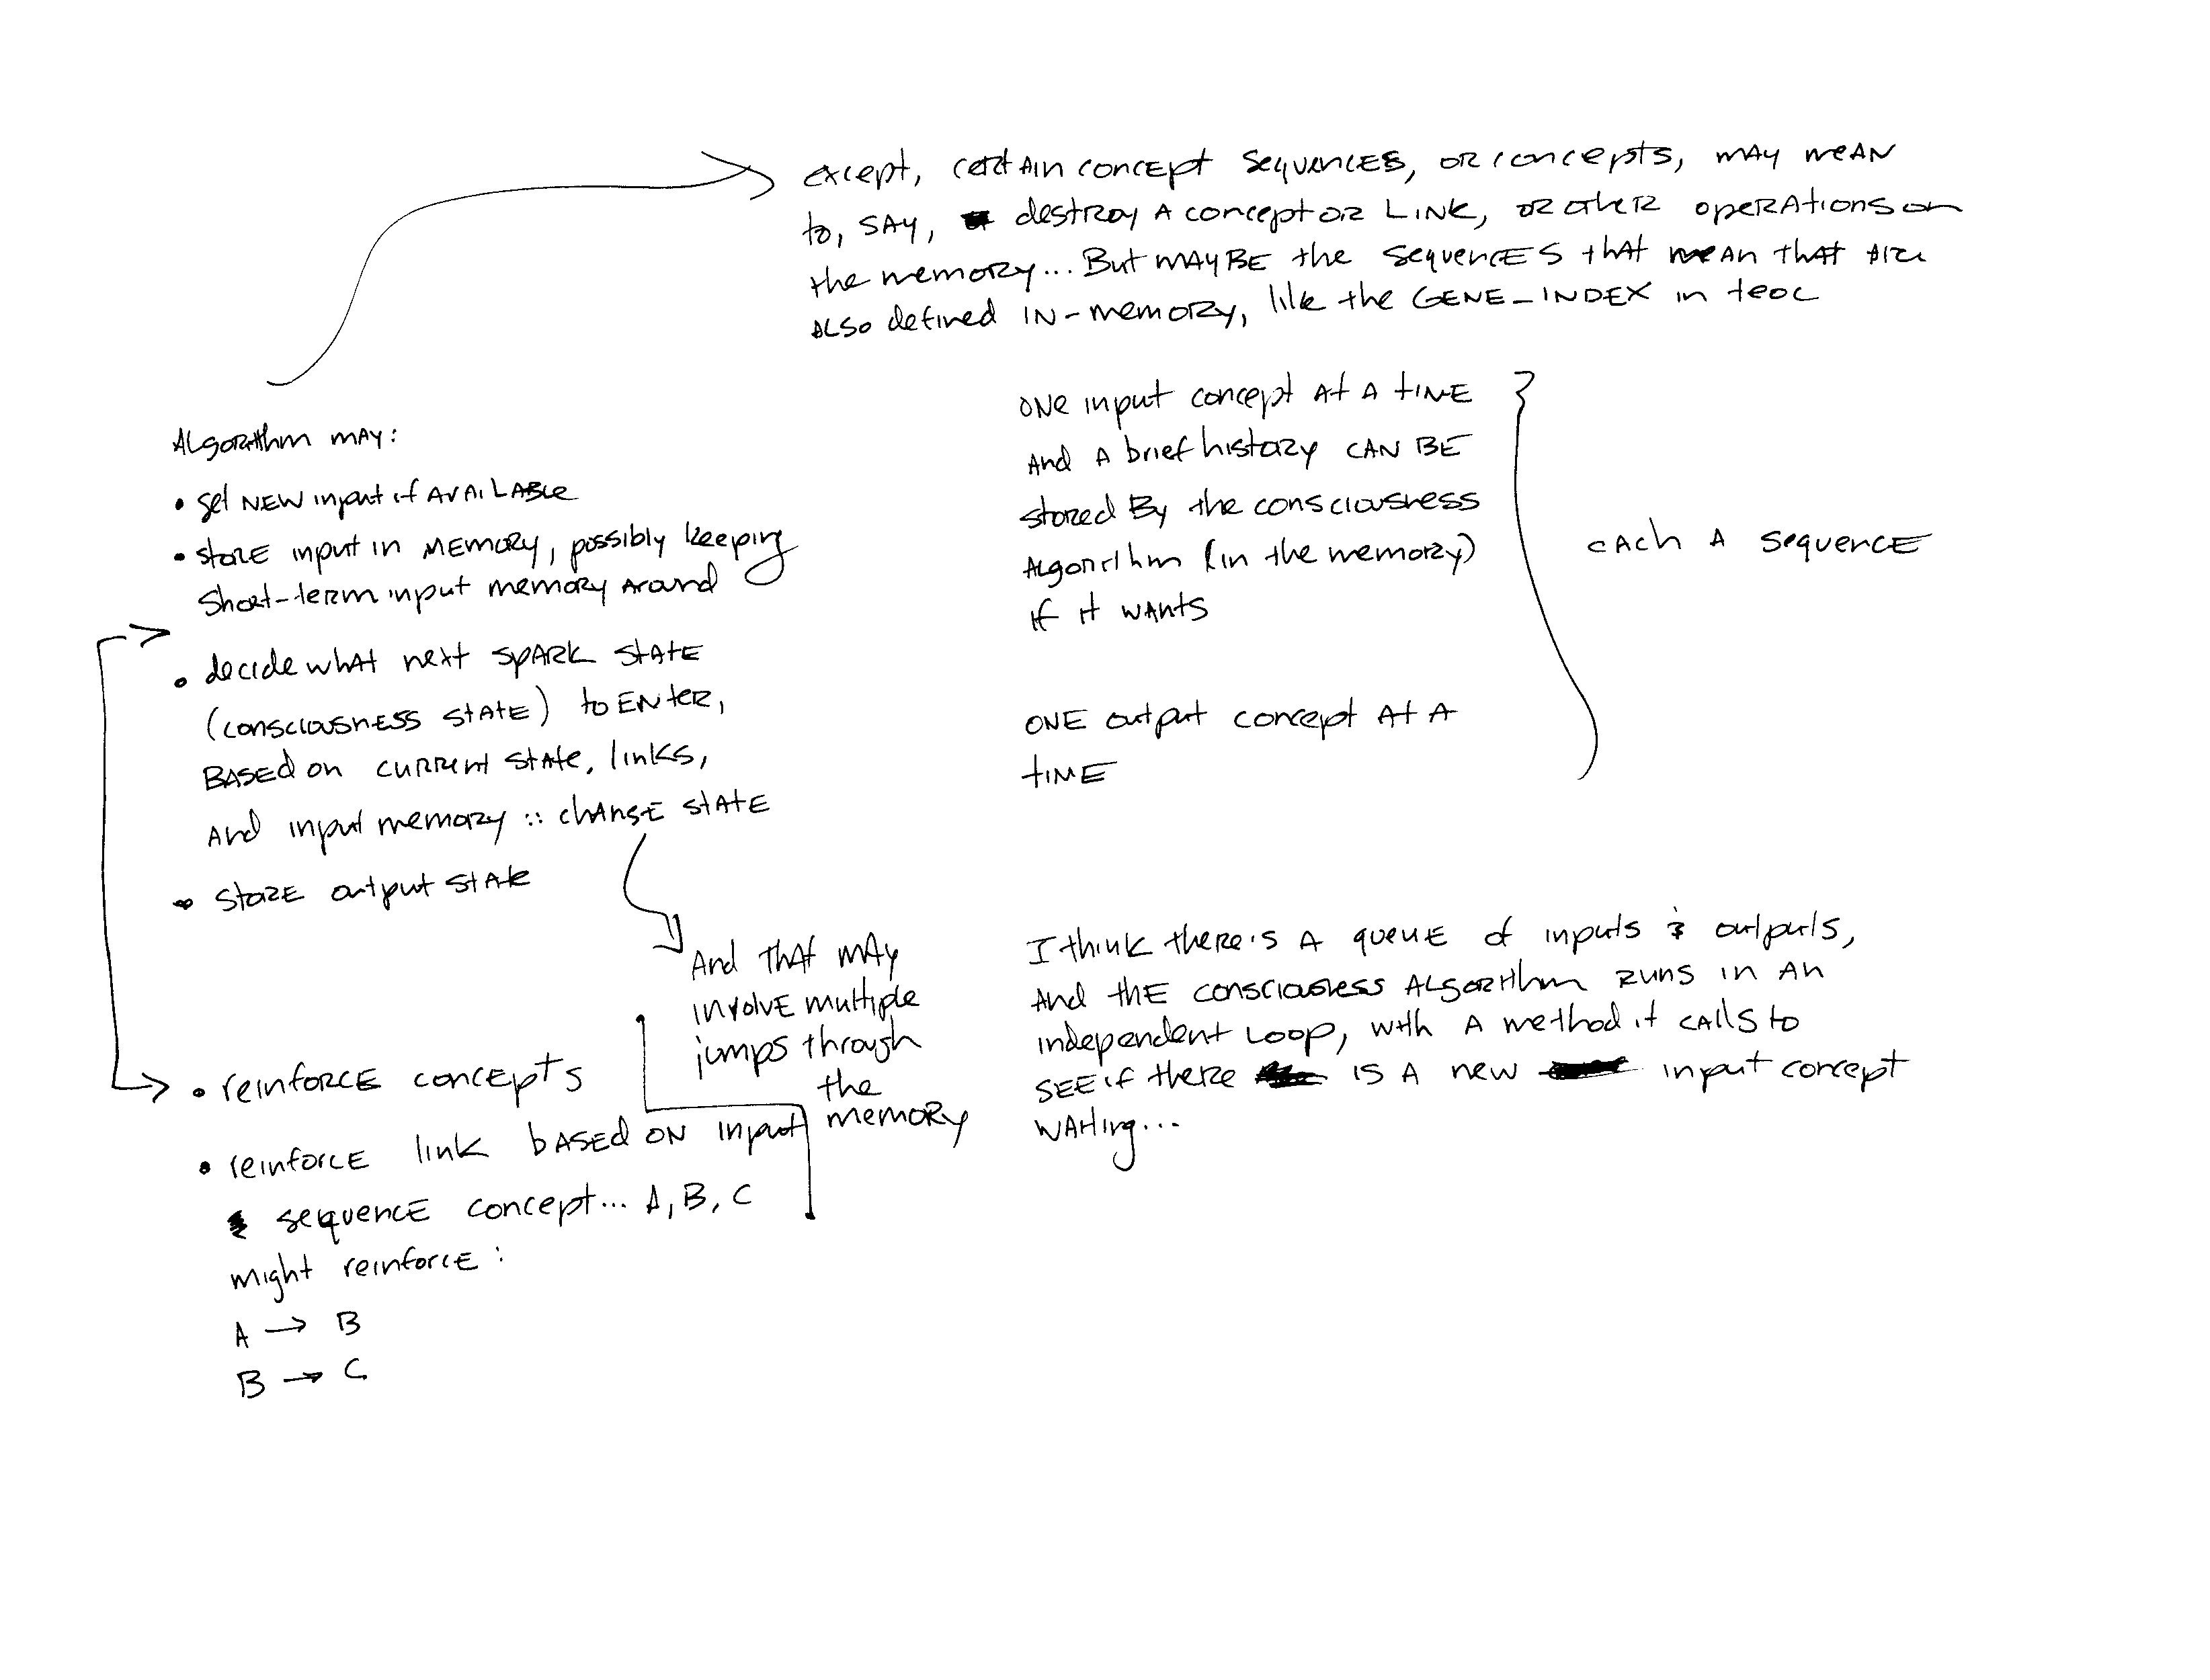 except, certain concept sequences, or concepts, may mean
to, say, destroy a concept or link, or other operations on
the memory... But maybe the sequences that mean that are
also defined in-memory, like the GENE_INDEX in teoc
Algorithm may:
• get new input if available
• store input in memory, possibly keeping
short-term input memory around
• decide what next spark state
(consciousness state) to enter,
based on current state, links,
and input memory :: change state
• store output state
And that may
involve multiple
jumps through
the
memory
• reinforce concepts
• reinforce link based on input
sequence concept... A, B, C
might reinforce:
A → B
B → C
one input concept at a time
and a brief history can be
stored by the consciousness
algorithm (in the memory)
if it wants
one output concept at a
time
each a sequence
I think there's a queue of inputs & outputs,
and the consciousness algorithm runs in an
independent loop, with a method it calls to
see if there is a new input concept
waiting...